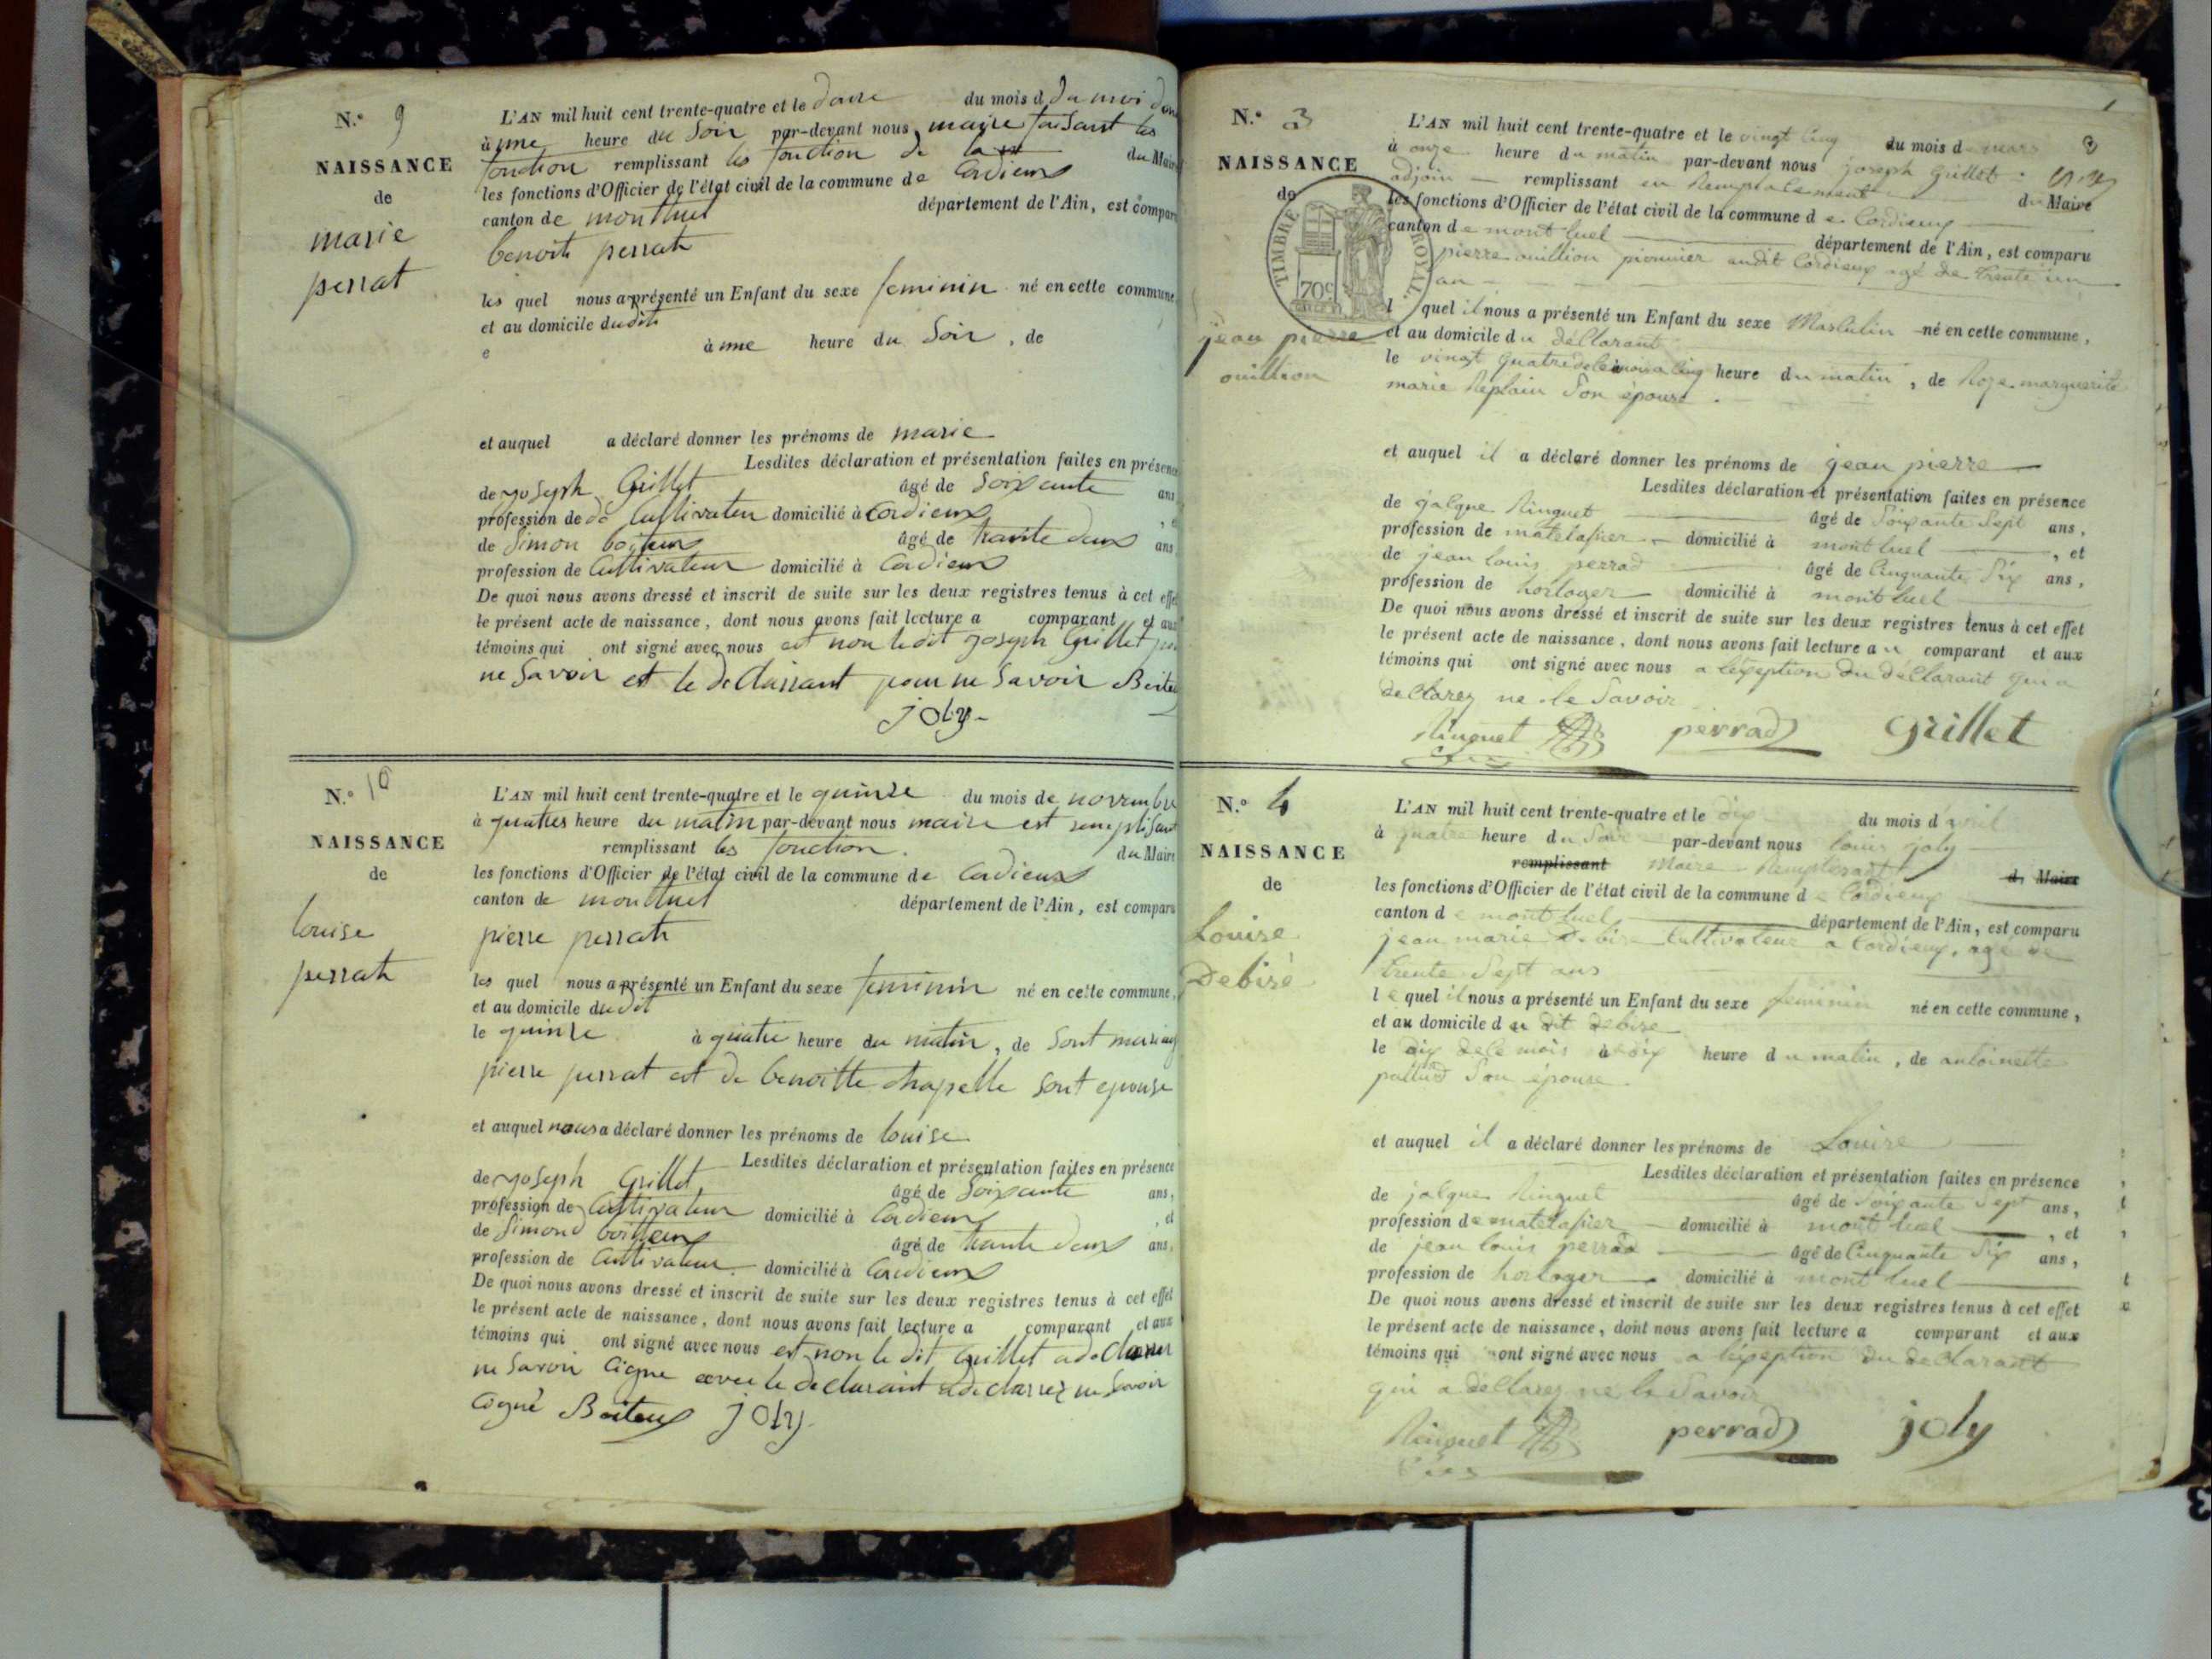 N.° 9
NAISSANCE
de
marie
perrat
L'AN mil huit cent trente-quatre et le du mois d du moi
à une heure du Soir par-devant nous maire faisant les
fonction remplissant les fonction de la du Maire
les fonctions d'Officier de l'état civil de la commune de Cordieux
canton de montluel département de l'Ain, est compar
benoit perrat
les quel nous a présenté un Enfant du sexe feminin né en cette commune,
et au domicile dudit
à une heure du Soir, de
et auquel a déclaré donner les prénoms de marie
Lesdites déclaration et présentation faites en présence
de joseph Grillet âgé de Soixante ans
profession de de Cultivateur domicilié à Cordieux
de Simon boiteux âgé de trante deux ans
profession de Cultivateur domicilié à Cordieux
De quoi nous avons dressé et inscrit de suite sur les deux registres tenus à cet effet
le présent acte de naissance, dont nous avons fait lecture a comparant et aux
témoins qui ont signé avec nous est non le dit joseph Grillet
ne Savoir et le declarrant pour ne Savoir
joly
N.° 10
NAISSANCE
de
louise
perrat
L'AN mil huit cent trente-quatre et le quinze du mois de novembre
à quatres heure du matin par-devant nous maire est remplisant
remplissant les fonction. du Maire
les fonctions d'Officier de l'état civil de la commune de Cordieux
canton de montluel département de l'Ain, est comparu
pierre perrat
les quel nous a présenté un Enfant du sexe feminin né en cette commune,
et au domicile dudit
le quinze à quatre heure du matin, de Sont mariag
pierre perrat est de benoitte chapelle sont epouse
et auquel nous a déclaré donner les prénoms de louise
Lesdites déclaration et présentation faites en présence
de joseph Grillet âgé de Soixante ans,
profession de Cultivateur domicilié à Cordieux, et
de Simond boitteux âgé de trante deux ans,
profession de Cultivateur domicilié à Cordieux
De quoi nous avons dressé et inscrit de suite sur les deux registres tenus à cet effet
le présent acte de naissance, dont nous avons fait lecture a comparant et aux
témoins qui ont signé avec nous est non le dit Grillet a declarer
ne Savoir Cigne avec le declarant a declarrez ne Savoir
Cigné Boiteux joly
N.° 3
NAISSANCE
de
TIMBRE ROYAL.
70c
jean pierre
ouillion
L'AN mil huit cent trente-quatre et le vingt cinq du mois de mars 3
à onze heure du matin par-devant nous joseph grillet
adjoin remplissant en Remplacement du Maire
les fonctions d'Officier de l'état civil de la commune de Cordieux
canton de mont luel département de l'Ain, est comparu
pierre ouillion pionnier audit Cordieux agé de trente un
an
l quel il nous a présenté un Enfant du sexe Masculin né en cette commune,
et au domicile du déClarant
le vingt quatre de ce mois a cinq heure du matin, de Roze marguerite
marie Replain Son épouse.
et auquel il a déclaré donner les prénoms de jean pierre
Lesdites déclaration et présentation faites en présence
de jalque Ringuet âgé de Soixante Sept ans,
profession de matelassier domicilié à mont luel, et
de jean louis perrad âgé de Cinquante Six ans,
profession de horloger domicilié à mont luel
De quoi nous avons dressé et inscrit de suite sur les deux registres tenus à cet effet
le présent acte de naissance, dont nous avons fait lecture au comparant et aux
témoins qui ont signé avec nous a lexception du déClarant qui a
deClarez ne le Savoir
Ringuet perrad grillet
N.° 4
NAISSANCE
de
Louise
Debise
L'AN mil huit cent trente-quatre et le dix du mois d avril
à quatre heure du Soir par-devant nous louis joly
remplissant Maire Remplissant d. Maire
les fonctions d'Officier de l'état civil de la commune de Cordieux
canton de mont luel département de l'Ain, est comparu
jean marie Debise Cultivateur a Cordieux, agé de
trente Sept ans
le quel il nous a présenté un Enfant du sexe feminin né en cette commune,
et au domicile du dit debise
le dix de ce mois à dix heure du matin, de antoinette
Son épouse
et auquel il a déclaré donner les prénoms de Louise
Lesdites déclaration et présentation faites en présence
de jalque Ringuet âgé de Soixante Sept ans,
profession de matelassier domicilié à mont luel, et
de jean louis perrad âgé de Cinquante Six ans,
profession de horloger domicilié à mont luel
De quoi nous avons dressé et inscrit de suite sur les deux registres tenus à cet effet
le présent acte de naissance, dont nous avons fait lecture a comparant et aux
témoins qui ont signé avec nous a lexception du deClarant
qui a déClarez ne le Savoir
Ringuet perrad joly